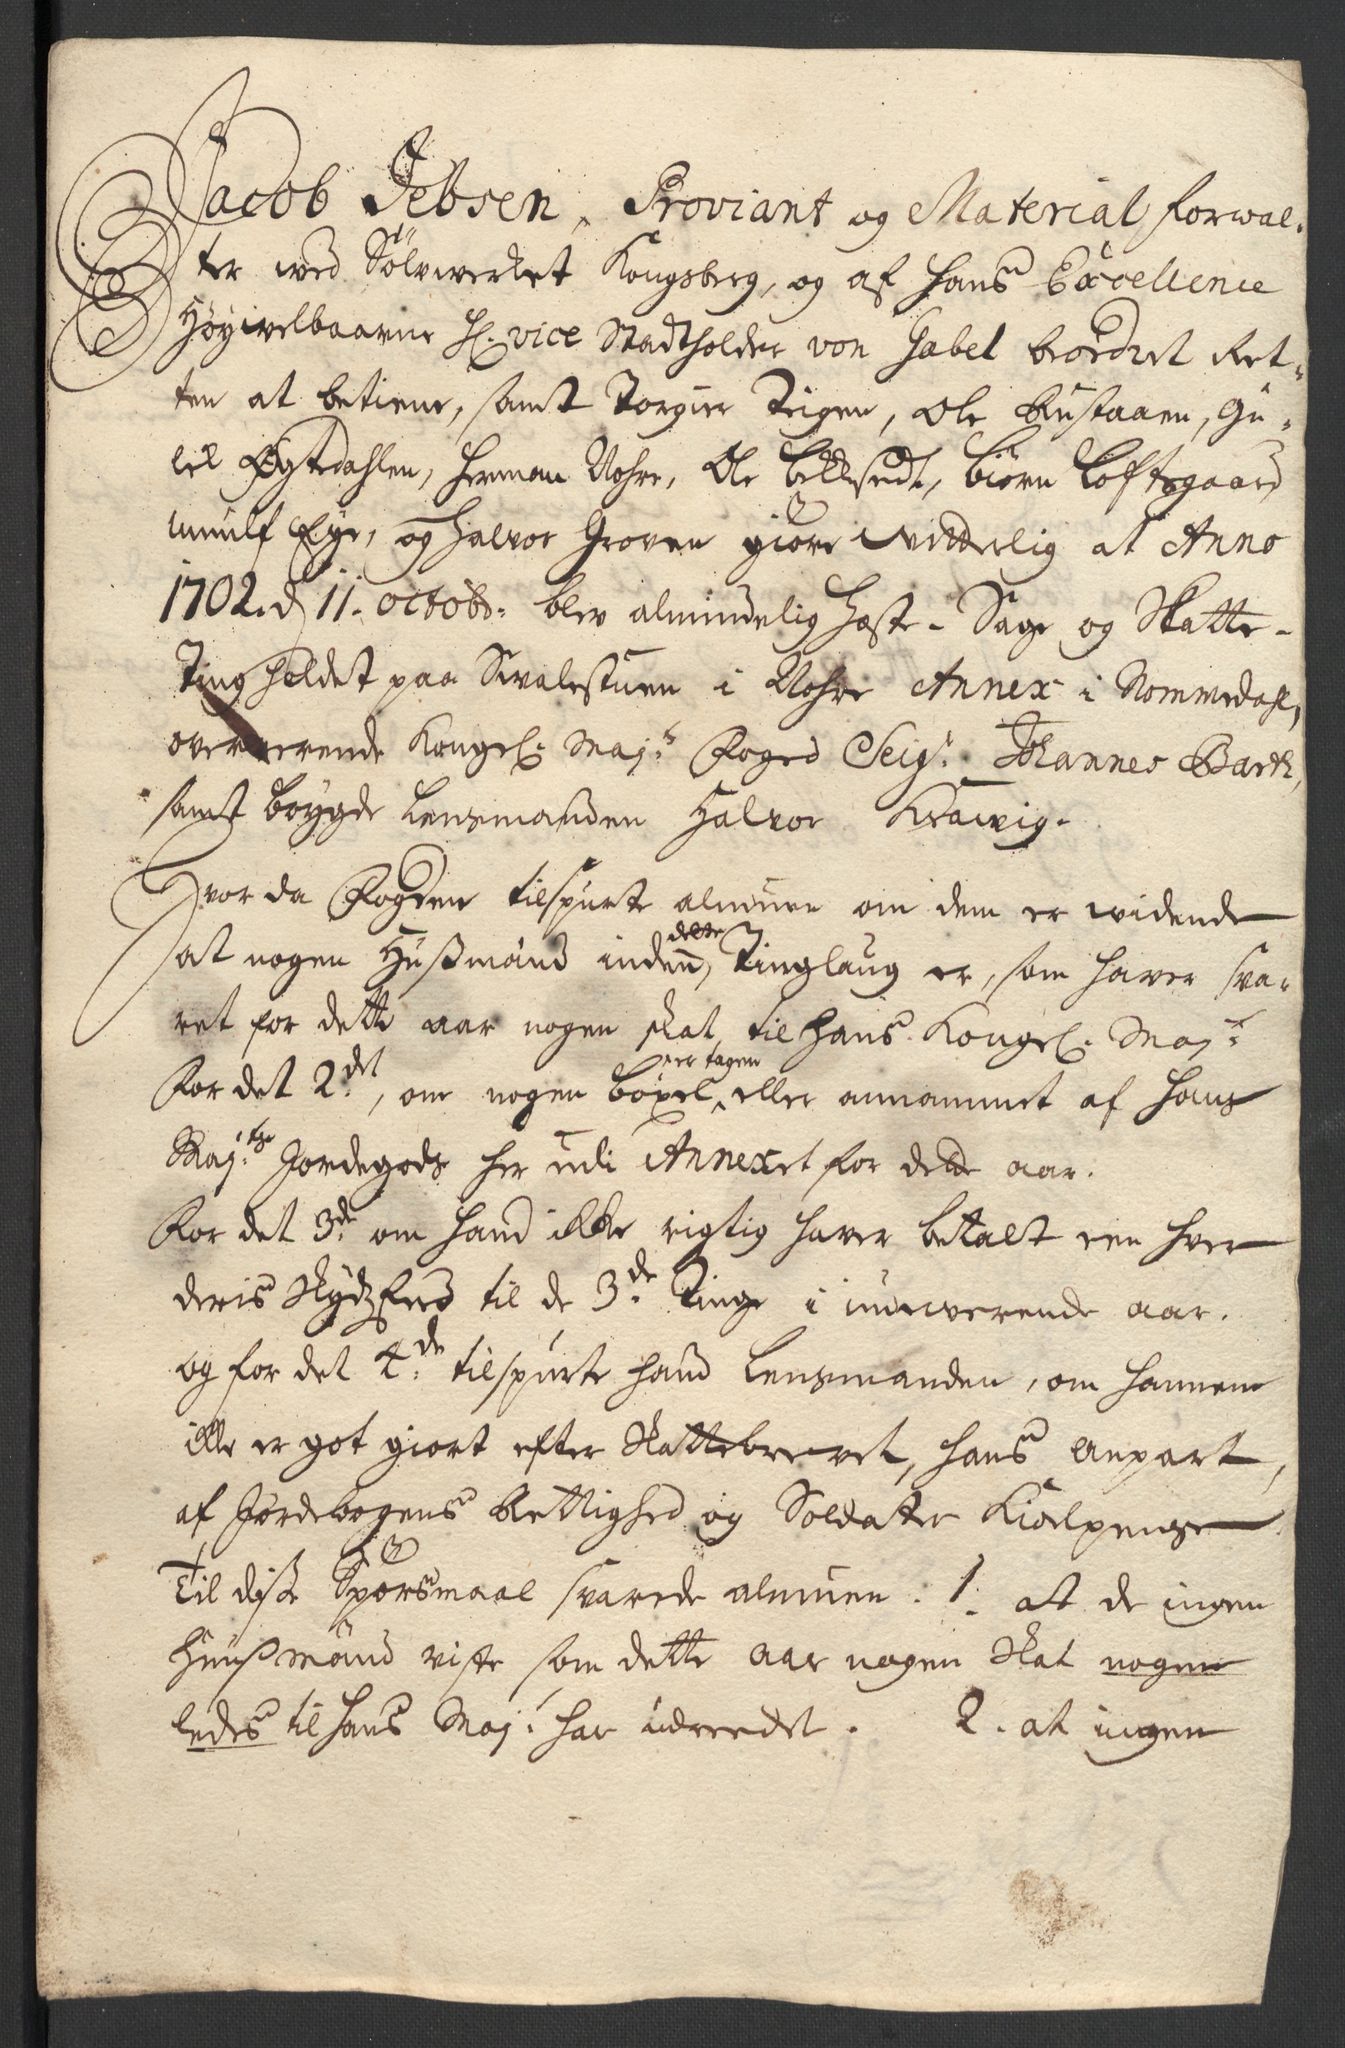 Jacob Jebsen, Proviant og Material forwal-
ter wed Sølvwerket Kongsberg, og af Hans Excellence
Høyvelbaarne H. vice Stadtholder von Gabel beordret Ret-
ten at betiene, samt Torgier Teigen, Ole Rustaaen, Gu-
lek Øgtedahlen, Herman Nohre, Ole bekkesedt, biørn Loftsgaard
Eye, og Halvor Groven giøre vitterlig at Anno
1702. d 11. octobr. blev almindelig Høste- Sage og Skatte-
Ting holdet paa Svalestuen i Nohre Annex i Nommedahl,
overwerende Kongel. Maj.ts Foged Seigr. Johannes Barth,
samt bøygde Lensmanden Halvor Krawig.
Hvor da Fogden tilspurte almuen om dem er widende
at nogen Hussmænd inden dette Tinglaug er, som haver sva-
ret for dette aar nogen skat til Hans Kongel. Maj.t
For det 2.det, om nogen bøxel er tagen eller annammet af Hans
Maj.ts Jordegods her udi Annexet for dette aar.
For det 3.de om hand ikke rigtig haver betalt een hver
deris Skydzferd til de 3.de Tinge i inderwerende aar.
og for det 4.de tilspurte hand Lensmanden, om hannem
ikke er got giort efter Skattebrevet, hans anpart,
af Jordebogens Rettighed og Soldatter Kiolpenge
Til disse Spørsmaal svarede almuen. 1. at de ingen
Huussmænd viste som dette aar nogen Skat nogen-
ledes til Hans Maj.t har udreedet. 2. at ingen